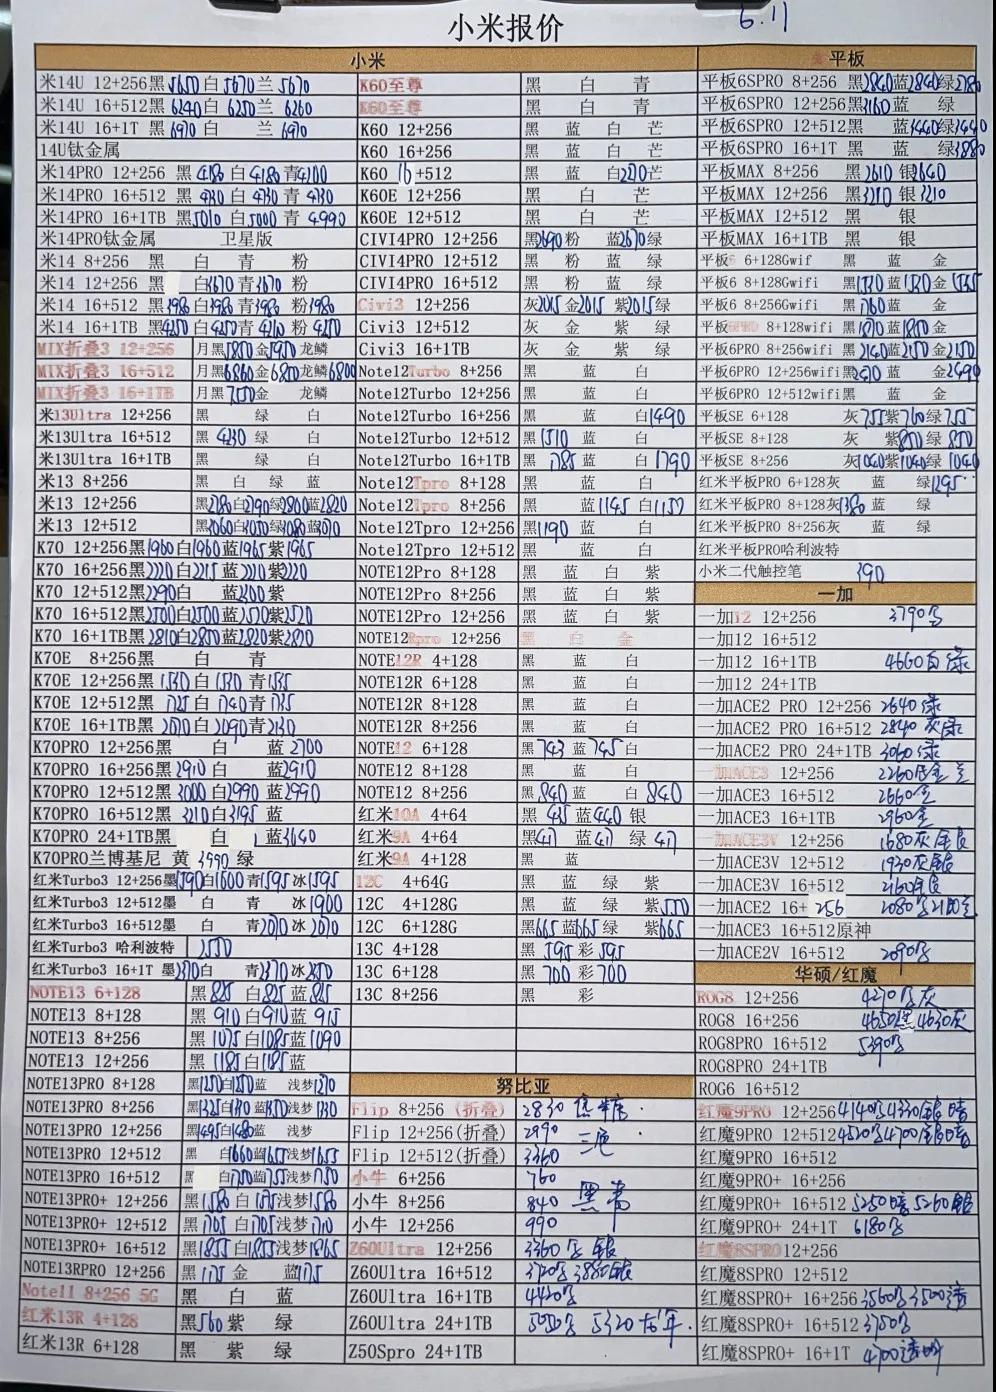 小米报价
6.11
小米
米14U 12+256黑5650白5670兰5670
米14U 16+512黑6240白6250兰6260
米14U 16+1T 黑6970白 兰6970
14U钛金属
米14PRO 12+256 黑4180白4180青4200
米14PRO 16+512 黑4730白4730青4730
米14PRO 16+1TB 黑5010白5000青4990
米14PRO钛金属 卫星版
米14 8+256 黑 白 青 粉
米14 12+256 黑 白3670青3670粉
米14 16+512 黑3980白3980青3980粉3980
米14 16+1TB 黑4250白4250青4260粉4250
MIX折叠3 12+256 月黑5850金5950龙鳞
MIX折叠3 16+512 月黑6860金6850龙鳞6800
MIX折叠3 16+1TB 月黑7550金 龙鳞
米13Ultra 12+256 黑 绿 白
米13Ultra 16+512 黑4230绿 白
米13Ultra 16+1TB 黑 绿 白
米13 8+256 黑 白 绿 蓝
米13 12+256 黑2780白2790绿2800蓝2820
米13 12+512 黑3060白3050绿3080蓝3070
K70 12+256黑1960白1960蓝1965紫1965
K70 16+256黑2220白2215蓝2210紫2220
K70 12+512黑2290白 蓝2300紫
K70 16+512黑2500白2500蓝2570紫2520
K70 16+1TB黑2810白2800蓝2820紫2820
K70E 8+256黑 白 青
K70E 12+256黑1530白1530青1535
K70E 12+512黑1725白1740青1735
K70E 16+1TB黑2070白2090青2130
K70PRO 12+256黑 白 蓝2700
K70PRO 16+256黑2910白 蓝2910
K70PRO 12+512黑3000白2990蓝2990
K70PRO 16+512黑3210白3195蓝
K70PRO 24+1TB黑 白 蓝3640
K70PRO兰博基尼 黄3990绿
红米Turbo3 12+256墨1590白1600青1595冰1595
红米Turbo3 12+512墨 白 青 冰1900
红米Turbo3 16+512墨 白 青2070冰2070
红米Turbo3 哈利波特 2550
红米Turbo3 16+1T 墨2370白 青2370冰2350
NOTE13 6+128 黑825白825蓝825
NOTE13 8+128 黑910白910蓝915
NOTE13 8+256 黑1075白1085蓝1090
NOTE13 12+256 黑1185白1185蓝
NOTE13PRO 8+128 黑1250白1250蓝 浅梦1270
NOTE13PRO 8+256 黑1325白1310蓝1350浅梦1330
NOTE13PRO 12+256 黑1495白1480蓝 浅梦
NOTE13PRO 12+512 黑 白1660蓝1655浅梦1655
NOTE13PRO 16+512 白1750蓝1755浅梦1750
NOTE13PRO+ 12+256 黑1580白1575浅梦1580
NOTE13PRO+ 12+512 黑1705白1705浅梦1710
NOTE13PRO+ 16+512 黑1855白1855浅梦1865
NOTE13RPRO 12+256 黑1175金 蓝1175
Note11 8+256 5G 黑 白 蓝
红米13R 4+128 黑560紫 绿
红米13R 6+128 黑 紫 绿
K60至尊 黑 白 青
K60至尊 黑 白 青
K60 12+256 黑 蓝 白 芒
K60 16+256 黑 蓝 白 芒
K60 16+512 黑 蓝 白2270芒
K60E 12+256 黑 白 芒
K60E 12+512 黑 白 芒
CIVI4PRO 12+256 黑2690粉 蓝2670绿
CIVI4PRO 12+512 黑 粉 蓝 绿
CIVI4PRO 16+512 黑 粉 蓝 绿
Civi3 12+256 灰2015金2015紫2015绿
Civi3 12+512 灰 金 紫 绿
Civi3 16+1TB 灰 金 紫 绿
Note12Turbo 8+256 黑 蓝 白
Note12Turbo 12+256 黑 蓝 白
Note12Turbo 16+256 黑 蓝 白1490
Note12Turbo 12+512 黑1510蓝 白
Note12Turbo 16+1TB 黑1785蓝 白1790
Note12Tpro 8+128 黑 蓝 白
Note12Tpro 8+256 黑 蓝1145白1150
Note12Tpro 12+256 黑1190蓝 白
Note12Tpro 12+512 黑 蓝 白
NOTE12Pro 8+128 黑 蓝 白 紫
NOTE12Pro 8+256 黑 蓝 白 紫
NOTE12Pro 12+256 黑 蓝 白 紫
NOTE12Rpro 12+256 黑 白 金
NOTE12R 4+128 黑 蓝 白
NOTE12R 6+128 黑 蓝 白
NOTE12R 8+128 黑 蓝 白
NOTE12R 8+256 黑 蓝 白
NOTE12 6+128 黑743蓝745白
NOTE12 8+128 黑 蓝 白
NOTE12 8+256 黑840蓝 白840
红米10A 4+64 黑435蓝440银
红米9A 4+64 黑417蓝417绿417
红米9A 4+128 黑 蓝
12C 4+64G 黑 蓝 绿 紫
12C 4+128G 黑 蓝 绿 紫550
12C 6+128G 黑665蓝665绿 紫665
13C 4+128 黑595彩595
13C 6+128 黑700彩700
13C 8+256 黑 彩
努比亚
Flip 8+256 (折叠) 2830 焦糖
Flip 12+256(折叠) 2990 三色
Flip 12+512(折叠) 3360
小牛 6+256 760
小牛 8+256 840 黑青
小牛 12+256 990
Z60Ultra 12+256 3360 银
Z60Ultra 16+512 3720 3880银
Z60Ultra 16+1TB 4420
Z60Ultra 24+1TB 5050 5320 龙年
Z50Spro 24+1TB
平板
平板6SPRO 8+256 黑2840蓝2840绿2780
平板6SPRO 12+256黑3160蓝 绿
平板6SPRO 12+512黑 蓝3440绿3440
平板6SPRO 16+1T 黑 蓝 绿3880
平板MAX 8+256 黑2610银2640
平板MAX 12+256 黑3210银3210
平板MAX 12+512 黑 银
平板MAX 16+1TB 黑 银
平板6 6+128Gwif 黑 蓝 金
平板6 8+128Gwifi 黑1530蓝1530金1535
平板6 8+256Gwifi 黑1760蓝 金
平板6PRO 8+128wifi 黑1870蓝1850金
平板6PRO 8+256wifi 黑2140蓝2150金2150
平板6PRO 12+256wifi黑2510蓝 金2490
平板6PRO 12+512wifi黑 蓝 金
平板SE 6+128 灰755紫760绿755
平板SE 8+128 灰 紫850绿850
平板SE 8+256 灰1040紫1040绿1040
红米平板PRO 6+128灰 蓝 绿1295
红米平板PRO 8+128灰1380蓝 绿
红米平板PRO 8+256灰 蓝 绿
红米平板PRO哈利波特
小米二代触控笔 390
一加
一加12 12+256 3790
一加12 16+512
一加12 16+1TB 4660白绿
一加12 24+1TB
一加ACE2 PRO 12+256 2640绿
一加ACE2 PRO 16+512 2840灰绿
一加ACE2 PRO 24+1TB 3060绿
一加ACE3 12+256 2260
一加ACE3 16+512 2660金
一加ACE3 16+1TB 2960金
一加ACE3V 12+256 1680灰 银
一加ACE3V 12+512 1930灰银
一加ACE3V 16+512 2160银
一加ACE2 16+256 2080
一加ACE3 16+512原神
一加ACE2V 16+512 2090
华硕/红魔
ROG8 12+256 4270 灰
ROG8 16+256 4650黑 4630灰
ROG8PRO 16+512 5390
ROG8PRO 24+1TB
ROG6 16+512
红魔9PRO 12+256 4140 4330银 暗
红魔9PRO 12+512 4520 4700银暗
红魔9PRO 16+512
红魔9PRO+ 16+256
红魔9PRO+ 16+512 5250暗 5260银
红魔9PRO+ 24+1T 6180
红魔8SPRO 12+256
红魔8SPRO 12+512
红魔8SPRO+ 16+256 3560 3500透
红魔8SPRO+ 16+512 3750
红魔8SPRO+ 16+1T 4700透明